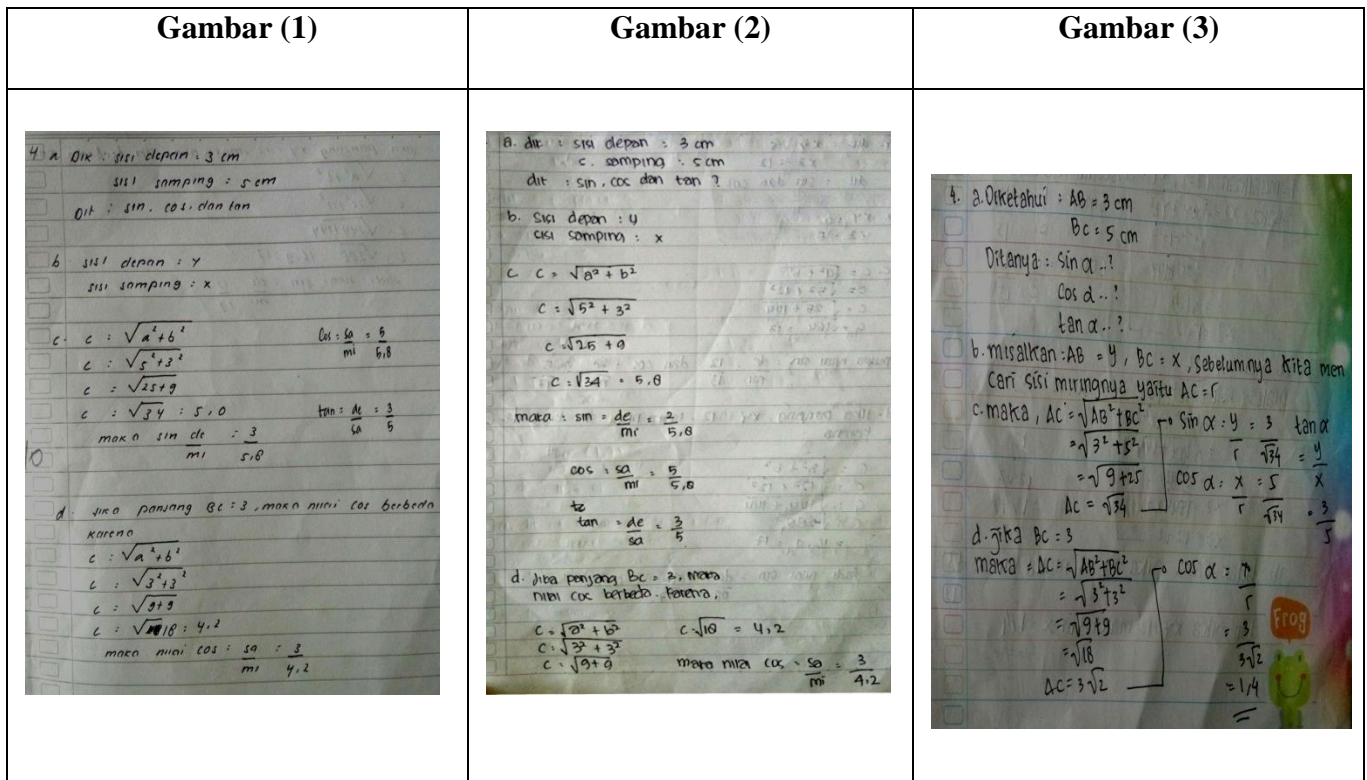 Gambar (1)
4 a Dik : sisi depan : 3 cm
sisi samping : 5 cm
Dit : sin, cos, dan tan
b sisi depan : y
sisi samping : x
c. c : √a²+b²
c : √5²+3²
c : √25+9
c : √34 : 5,0
maka sin de/mi : 3/5,8
cos : sa/mi = 5/5,8
tan : de/sa : 3/5
d. jika panjang BC : 3, maka nilai cos berbeda
karena
c : √a²+b²
c : √3²+3²
c : √9+9
c : √18 : 4,2
maka nilai cos : sa/mi : 3/4,2
Gambar (2)
a. dik : sisi depan : 3 cm
c. samping : 5 cm
dit : sin, cos dan tan ?
b. sisi depan : y
sisi samping : x
c C = √a² + b²
C : √5² + 3²
C : √25 + 9
C : √34 = 5,8
maka : sin = de/mi = 2/5,8
cos : sa/mi = 5/5,8
tan = de/sa = 3/5
d. jika panjang BC = 3, maka
nilai cos berbeda. karena,
C = √a² + b²
C : √3² + 3²
C : √9+9
C : √18 = 4,2
maka nilai cos = sa/mi = 3/4,2
Gambar (3)
4. a. Diketahui : AB = 3 cm
BC = 5 cm
Ditanya : Sin α ..?
Cos α ..?
tan α ..?
b. misalkan : AB = y, BC = x, sebelumnya kita men
cari sisi miringnya yaitu AC = r
c. maka, AC = √AB²+BC²
= √3²+5²
= √9+25
AC = √34
Sin α : y/r = 3/√34
Cos α : x/r = 5/√34
tan α = y/x = 3/5
d. jika BC = 3
maka = AC = √AB²+BC²
= √3²+3²
= √9+9
= √18
AC = 3√2
cos α : /r
= 3/3√2
= 1,4
Frog